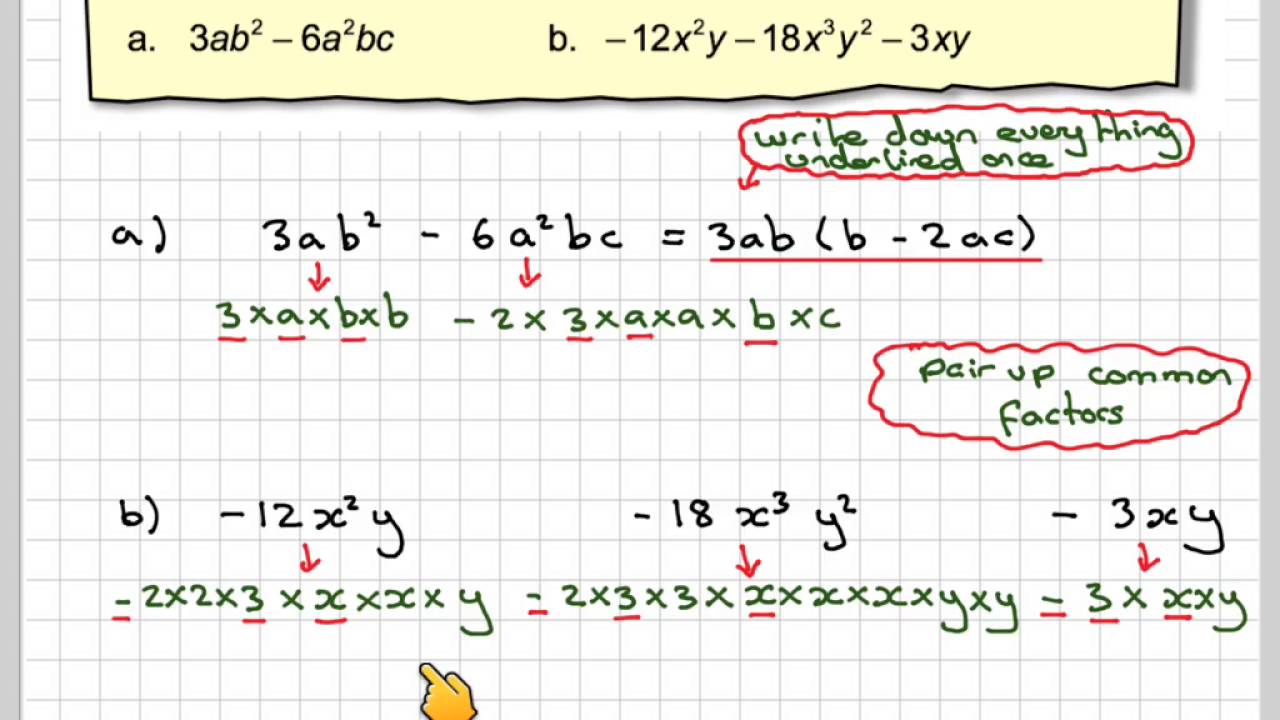 a. 3ab² – 6a²bc b. –12x²y – 18x³y² – 3xy
write down everything
underlined once
a) 3ab² - 6a²bc = 3ab (b - 2ac)
3×a×b×b - 2×3×a×a×b×c
Pair up common
factors
b) -12x²y - 18x³y² - 3xy
-2×2×3×x×x×y -2×3×3×x×x×x×y×y -3×x×y